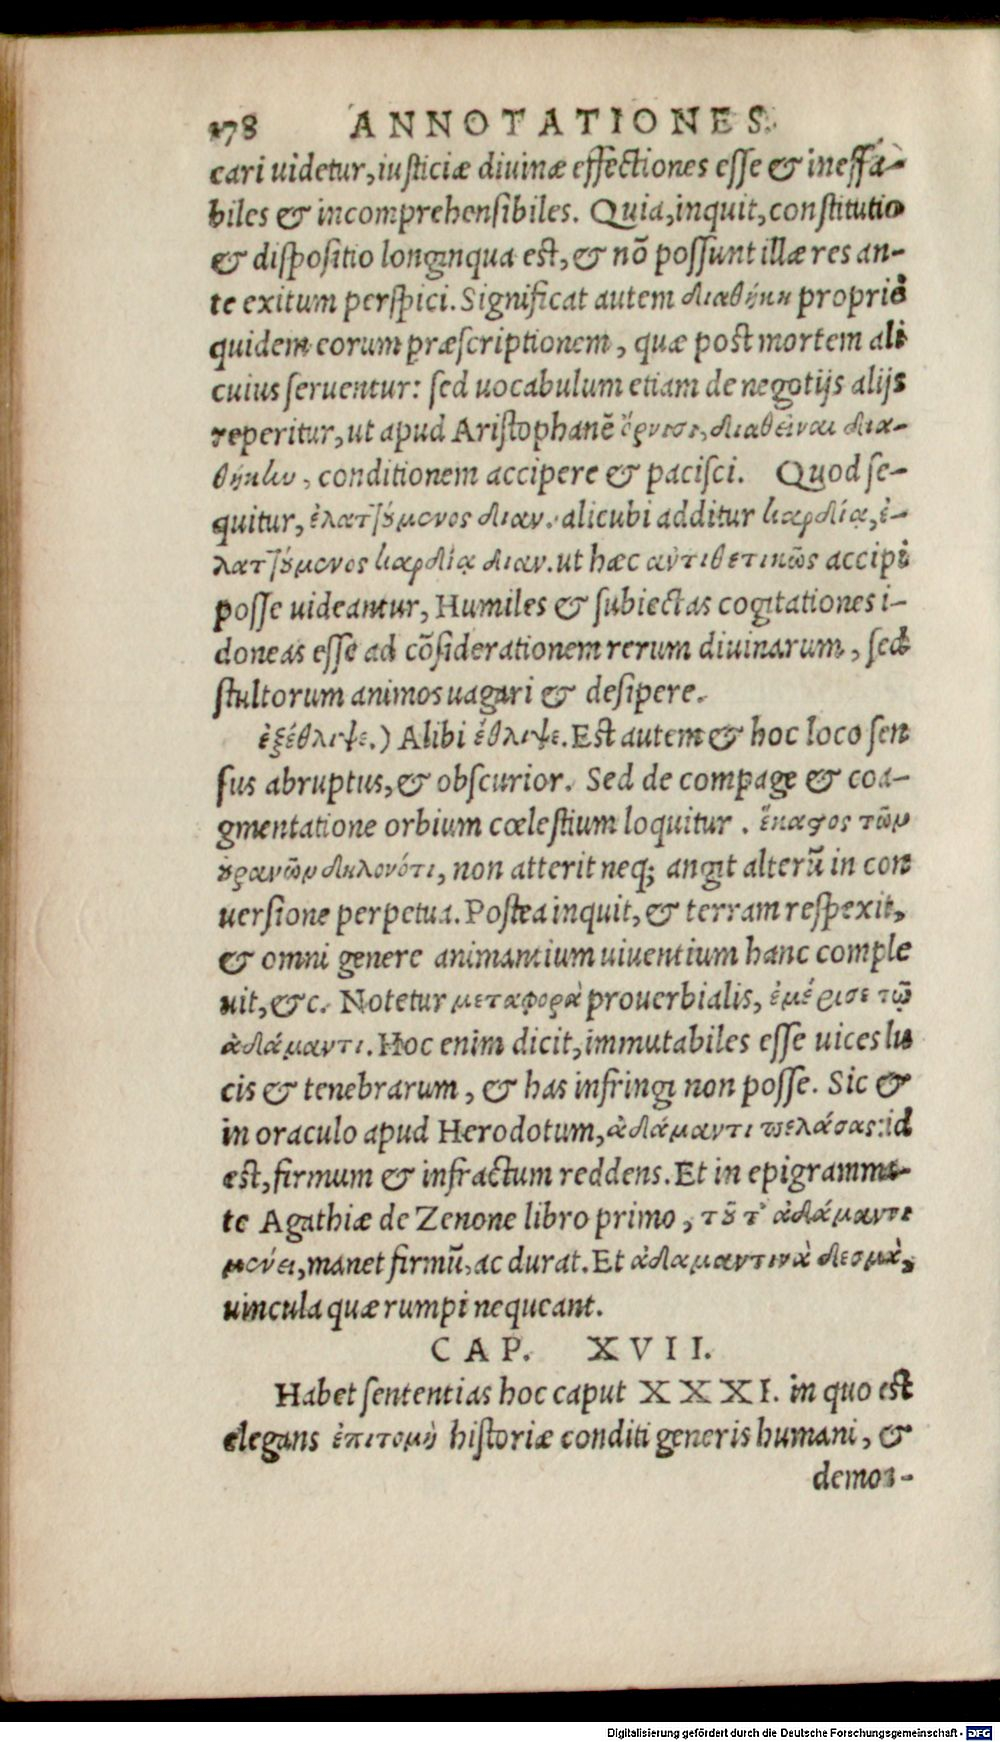 178 ANNOTATIONES.
cari uidetur, iusticiæ diuinæ effectiones esse & ineffa-
biles & incomprehensibiles. Quia, inquit, constitutio
& dispositio longinqua est, & nõ possunt illæ res an-
te exitum perspici. Significat autem διαθήκη propriè
quidem eorum præscriptionem, quæ post mortem ali
cuius seruentur: sed uocabulum etiam de negotijs alijs
reperitur, ut apud Aristophanẽ ὄρνισι, διαθεῖναι δια-
θήκην, conditionem accipere & pacisci. Quod se-
quitur, ἐλαττούμενος διαν. alicubi additur καρδίᾳ, ἐ-
λαττούμενος καρδίᾳ διαν. ut hæc ἀντιθετικῶς accipi
posse uideantur, Humiles & subiectas cogitationes i-
doneas esse ad cõsiderationem rerum diuinarum, sed
stultorum animos uagari & desipere.
ἐξέθλιψε.) Alibi ἔθλιψε. Est autem & hoc loco sen
sus abruptus, & obscurior. Sed de compage & coa-
gmentatione orbium cœlestium loquitur. ἕκαστος τῶν
οὐρανῶν δηλονότι, non atterit neq; angit alterũ in con
uersione perpetua. Postea inquit, & terram respexit,
& omni genere animantium uiuentium hanc comple
uit, &c. Notetur μεταφορὰ prouerbialis, ἐμέρισε τῷ
ἀδάμαντι. Hoc enim dicit, immutabiles esse uices lu
cis & tenebrarum, & has infringi non posse. Sic &
in oraculo apud Herodotum, ἀδάμαντι πελάσας: id
est, firmum & infractum reddens. Et in epigramma-
te Agathiæ de Zenone libro primo, τοῦ τ' ἀδάμαντι
μένει, manet firmũ, ac durat. Et ἀδαμαντινὰ δεσμὰ,
uincula quæ rumpi nequeant.
CAP. XVII.
Habet sententias hoc caput XXXI. in quo est
elegans ἐπιτομὴ historiæ conditi generis humani, &
demon-
Digitalisierung gefördert durch die Deutsche Forschungsgemeinschaft - DFG